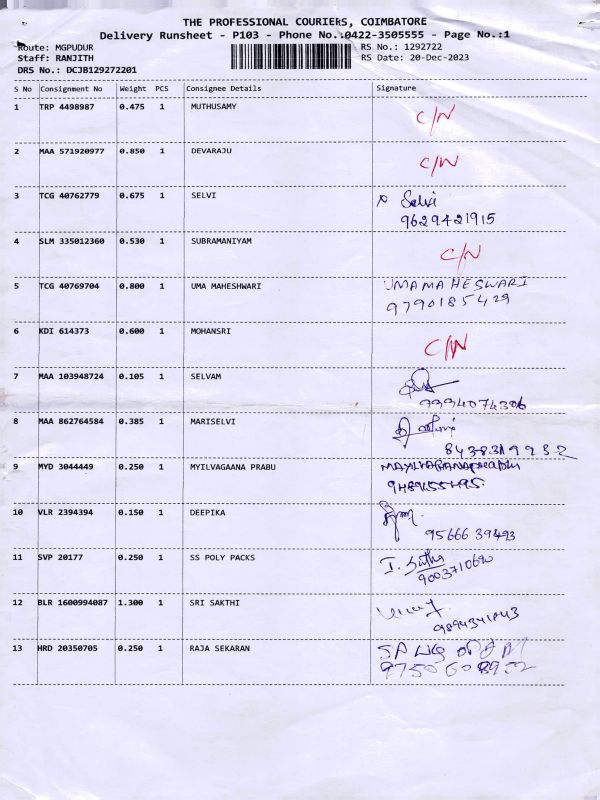 THE PROFESSIONAL COURIERS, COIMBATORE
Delivery Runsheet - P103 - Phone No.:0422-3505555 - Page No.:1
Route: MGPUDUR RS No.: 1292722
Staff: RANJITH RS Date: 20-Dec-2023
DRS No.: DCJB129272201
S No Consignment No Weight PCS Consignee Details Signature
1 TRP 4498987 0.475 1 MUTHUSAMY C/N
2 MAA 571920977 0.850 1 DEVARAJU C/N
3 TCG 40762779 0.675 1 SELVI Selvi
9629421915
4 SLM 335012360 0.530 1 SUBRAMANIYAM C/N
5 TCG 40769704 0.800 1 UMA MAHESHWARI UMAMAHESWARI
9790185429
6 KDI 614373 0.600 1 MOHANSRI C/N
7 MAA 103948724 0.105 1 SELVAM
8 MAA 862764584 0.385 1 MARISELVI
9 MYD 3044449 0.250 1 MYILVAGAANA PRABU
10 VLR 2394394 0.150 1 DEEPIKA
95666 39493
11 SVP 20177 0.250 1 SS POLY PACKS
9003710690
12 BLR 1600994087 1.300 1 SRI SAKTHI
13 HRD 20350705 0.250 1 RAJA SEKARAN